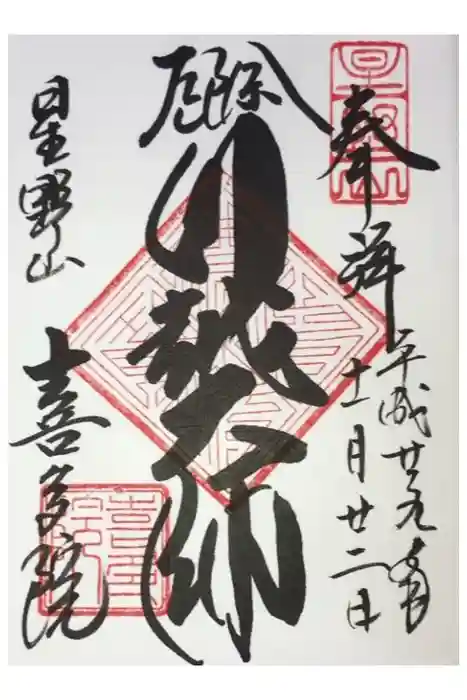 奉拝
平成廿九年
十一月廿二日
厄除
川越大師
星野山
喜多院